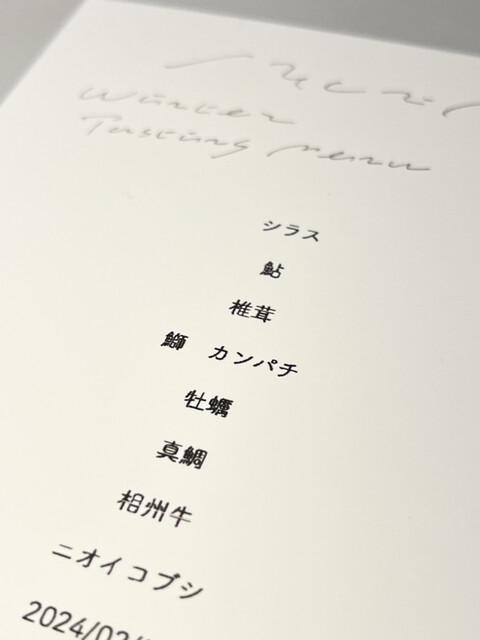 Winter
Tasting Menu
シラス
鮎
椎茸
鰤　カンパチ
牡蠣
真鯛
相州牛
ニオイコブシ
2024/02/